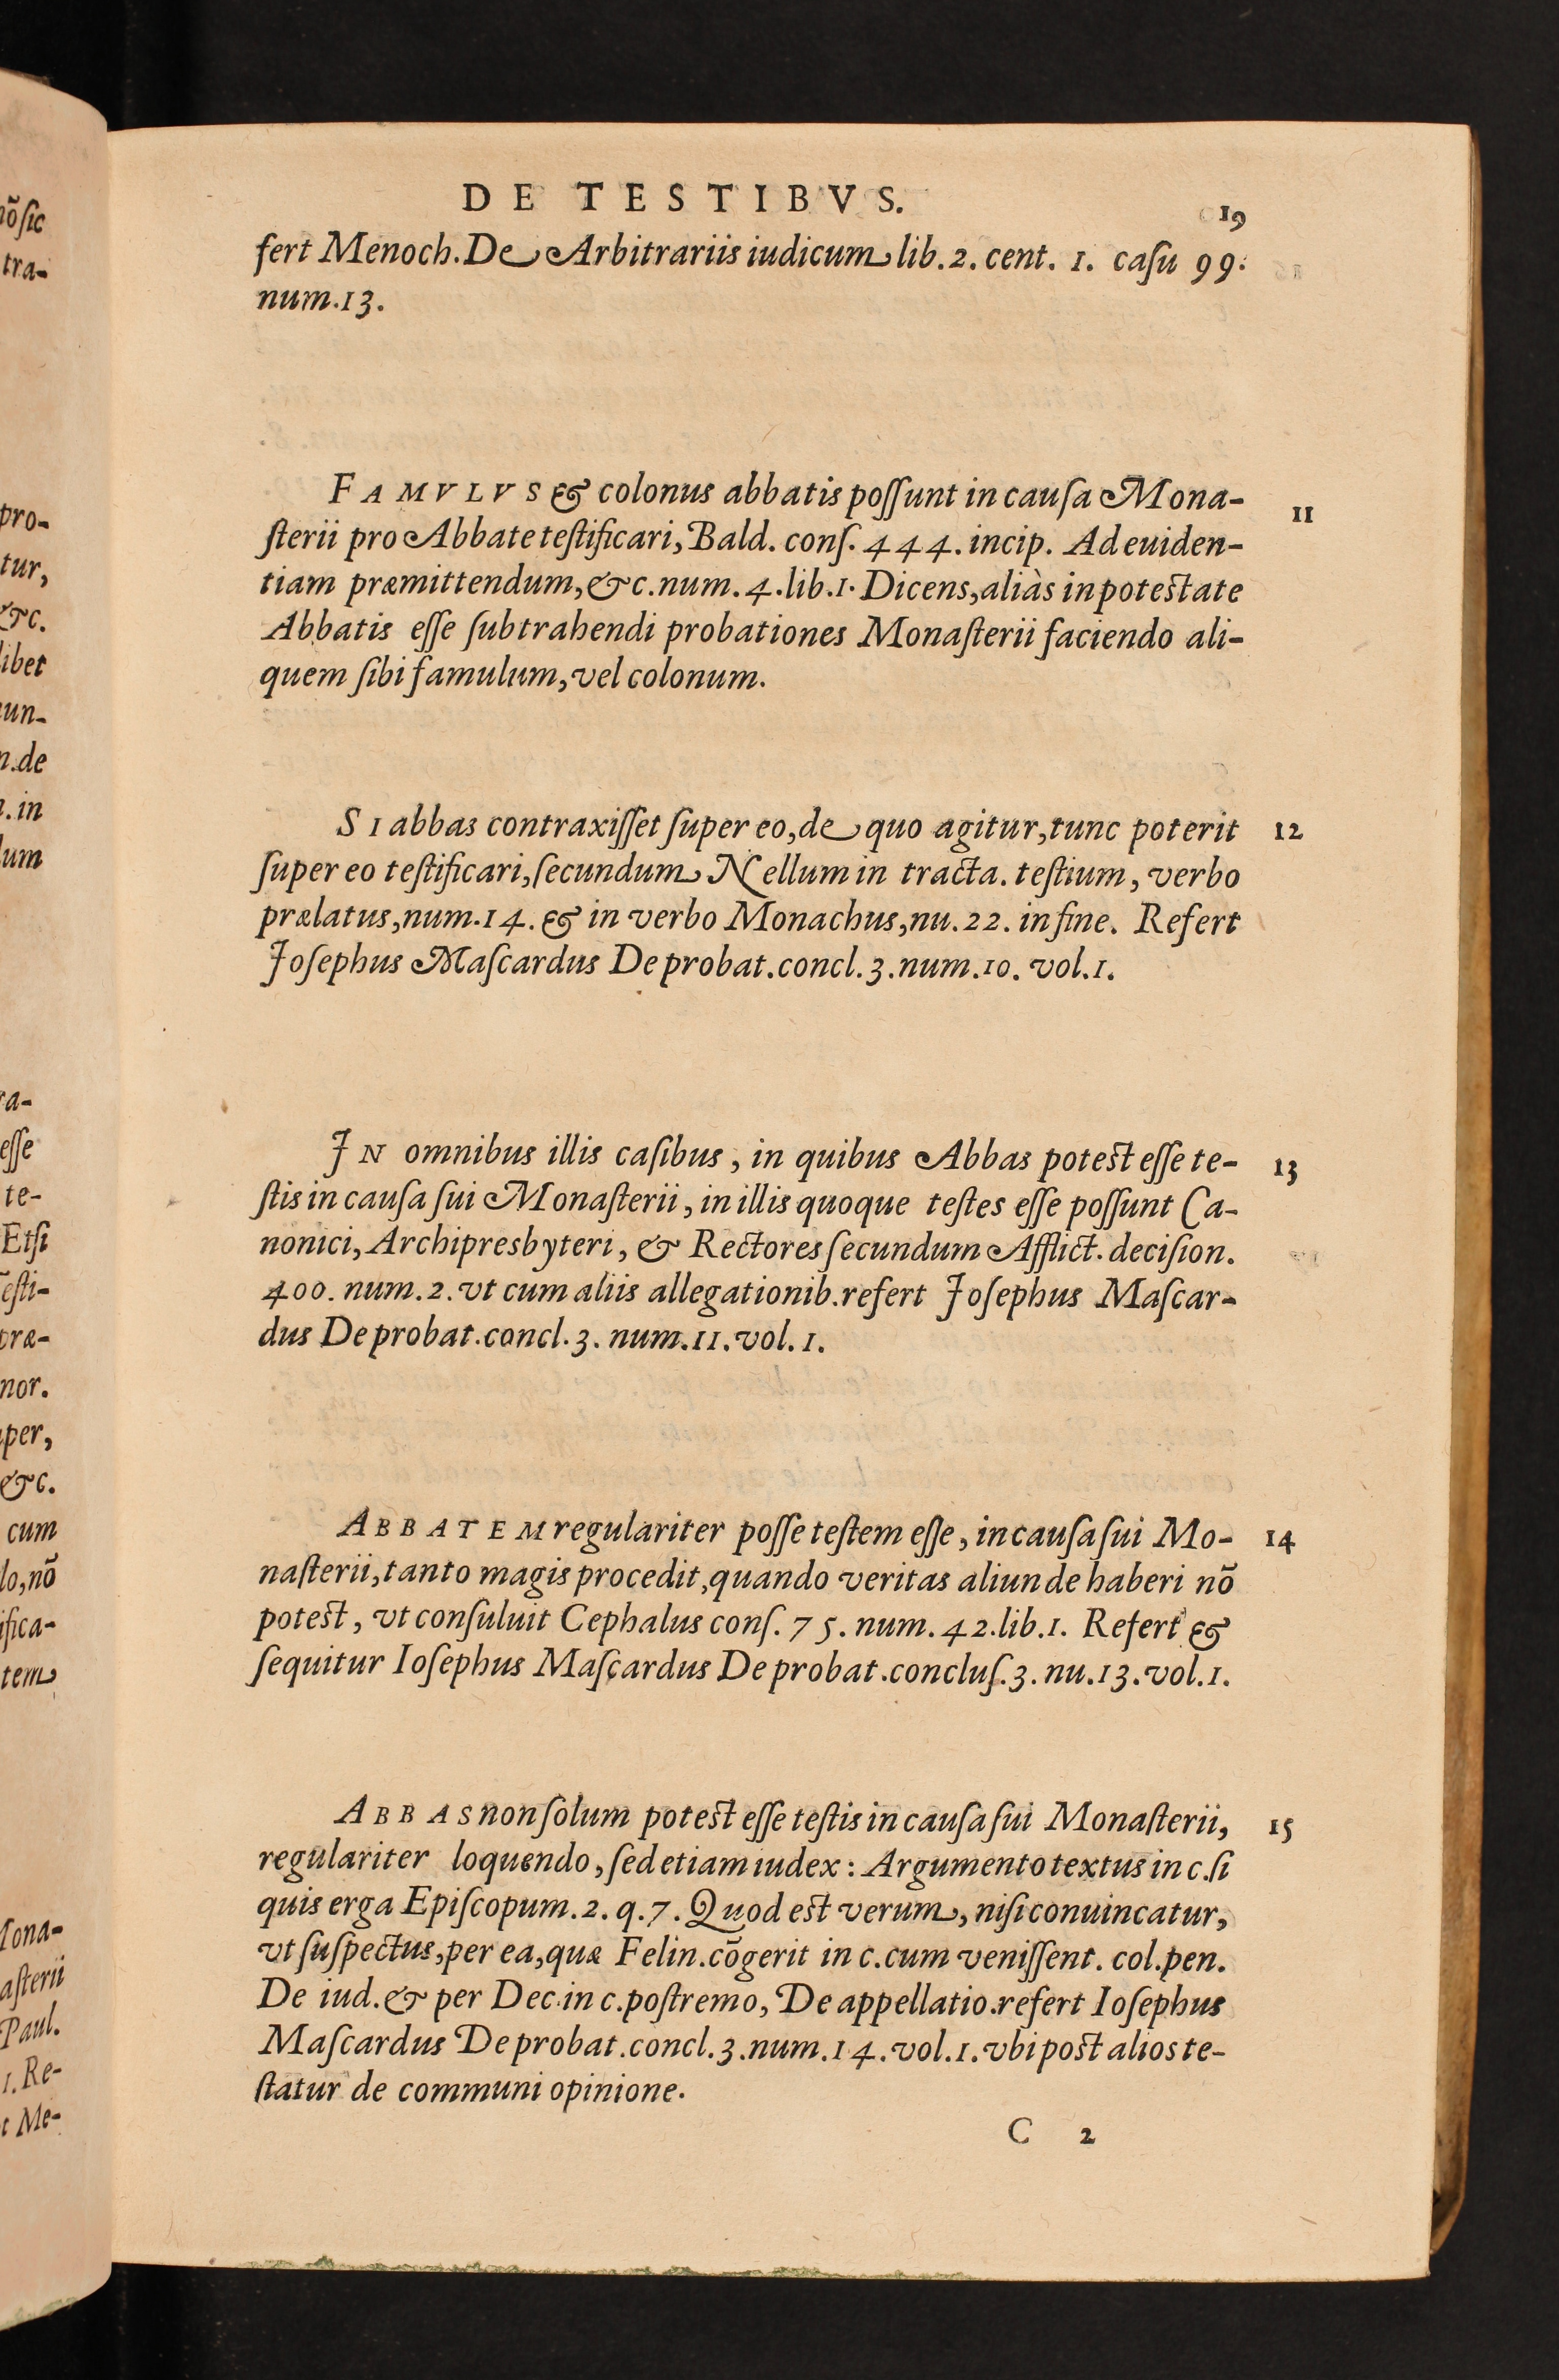 DE TESTIBVS.
19
fert Menoch. De Arbitrariis iudicum lib. 2. cent. 1. caſu 99.
num. 13.
FAMVLVS & colonus abbatis poſſunt in cauſa Mona-
11
ſterii pro Abbate teſtificari, Bald. conſ. 444. incip. Ad euiden-
tiam præmittendum, &c. num. 4. lib. 1. Dicens, aliàs in poteſtate
Abbatis eſſe ſubtrahendi probationes Monaſterii faciendo ali-
quem ſibi famulum, vel colonum.
SI abbas contraxiſſet ſuper eo, de quo agitur, tunc poterit
12
ſuper eo teſtificari, ſecundum Nellum in tracta. teſtium, verbo
prælatus, num. 14. & in verbo Monachus, nu. 22. in fine. Refert
Joſephus Maſcardus De probat. concl. 3. num. 10. vol. 1.
JN omnibus illis caſibus, in quibus Abbas poteſt eſſe te-
13
ſtis in cauſa ſui Monaſterii, in illis quoque teſtes eſſe poſſunt Ca-
nonici, Archipresbyteri, & Rectores ſecundum Afflict. deciſion.
400. num. 2. vt cum aliis allegationib. refert Joſephus Maſcar-
dus De probat. concl. 3. num. 11. vol. 1.
ABBATEM regulariter poſſe teſtem eſſe, in cauſa ſui Mo-
14
naſterii, tanto magis procedit, quando veritas aliunde haberi nõ
poteſt, vt conſuluit Cephalus conſ. 75. num. 42. lib. 1. Refert &
ſequitur Ioſephus Maſcardus De probat. concluſ. 3. nu. 13. vol. 1.
ABBAS non ſolum poteſt eſſe teſtis in cauſa ſui Monaſterii,
15
regulariter loquendo, ſed etiam iudex: Argumento textus in c. ſi
quis erga Epiſcopum. 2. q. 7. Quod eſt verum, niſi conuincatur,
vt ſuſpectus, per ea, quæ Felin. cõgerit in c. cum veniſſent. col. pen.
De iud. & per Dec. in c. poſtremo, De appellatio. refert Ioſephus
Maſcardus De probat. concl. 3. num. 14. vol. 1. vbi poſt alios te-
ſtatur de communi opinione.
C 2